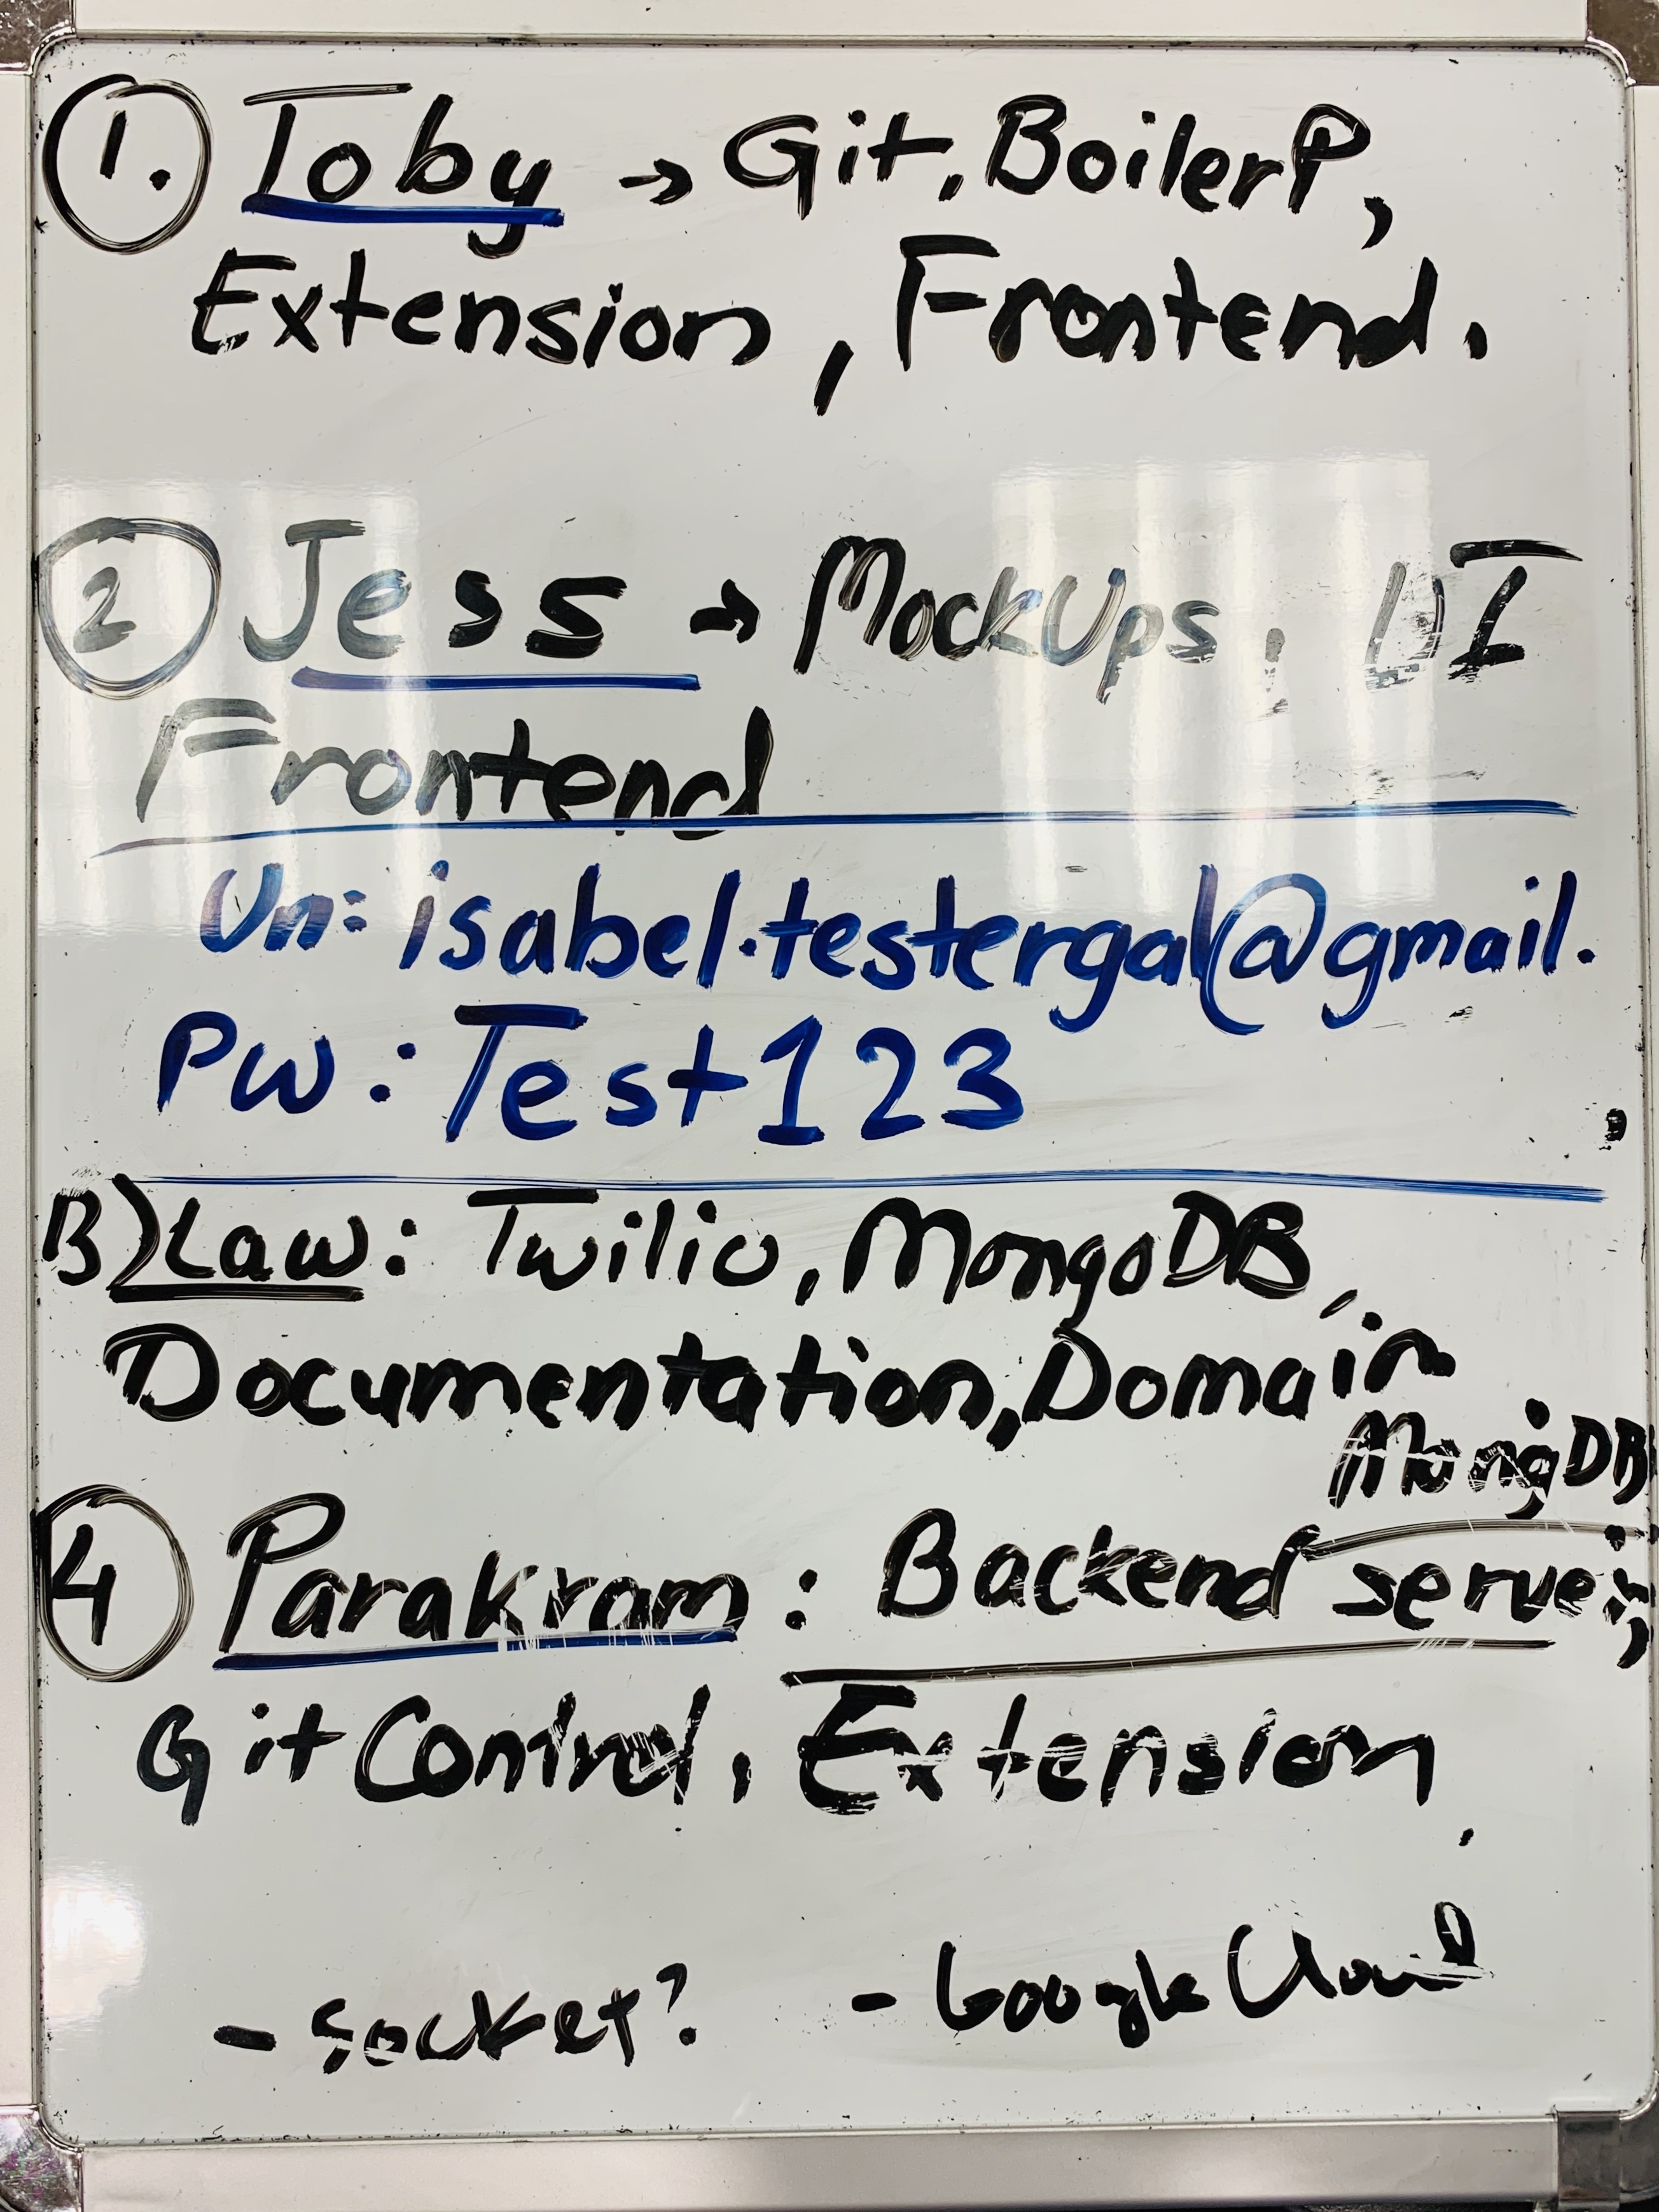 1. Toby → Git, BoilerP,
Extension, Frontend.
2 Jess → MockUps, UI
Frontend
Un: isabel.testergal@gmail.
PW: Test123
3) Law: Twilio, MongoDB,
Documentation, Domain
MongDB
4 Parakram: Backend server,
Git Control, Extension
- Socket? - Google Cloud